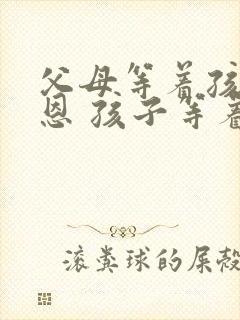 父母等着孩
恩 孩子等着
滚粪球的屎殻